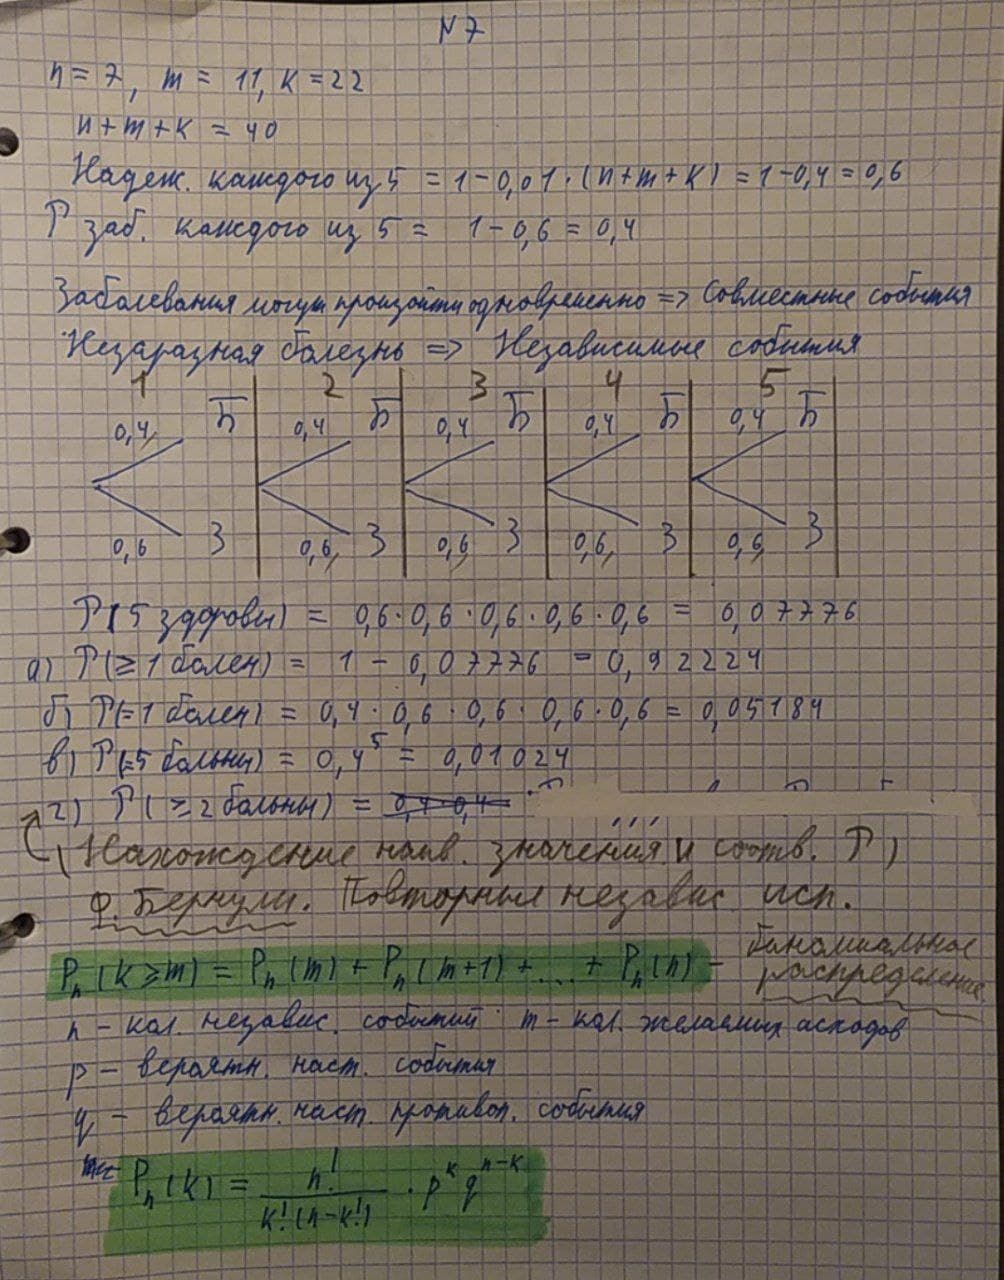 N 7
n = 7, m = 11, k = 22
n + m + k = 40
Надеж. каждого из 5 = 1 - 0,01 · (n + m + k) = 1 - 0,4 = 0,6
P заб. каждого из 5 = 1 - 0,6 = 0,4
Заболевания могут произойти одновременно => Совместные события
Незаразная болезнь => Независимые события
1 2 3 4 5
0,4 Б 0,4 Б 0,4 Б 0,4 Б 0,4 Б
0,6 З 0,6 З 0,6 З 0,6 З 0,6 З
P(5 здоровы) = 0,6 · 0,6 · 0,6 · 0,6 · 0,6 = 0,07776
а) P(≥ 1 болен) = 1 - 0,07776 = 0,92224
б) P(=1 болен) = 0,4 · 0,6 · 0,6 · 0,6 · 0,6 = 0,05184
в) P(=5 больны) = 0,4⁵ = 0,01024
г) P(≥ 2 больны) = 0,4 · 0,4
(Нахождение наив. значения и соотв. P)
Ф. Бернули. Повторные независ исп.
Pₙ(k ≥ m) = Pₙ(m) + Pₙ(m+1) + ... + Pₙ(n) - биномиальное
распределение
n - кол. независ. событий m - кол. желаемых исходов
p - вероятн. наст. события
q - вероятн. наст. противоп. события
Pₙ(k) = n! / k!(n-k!) · pᵏ qⁿ⁻ᵏ